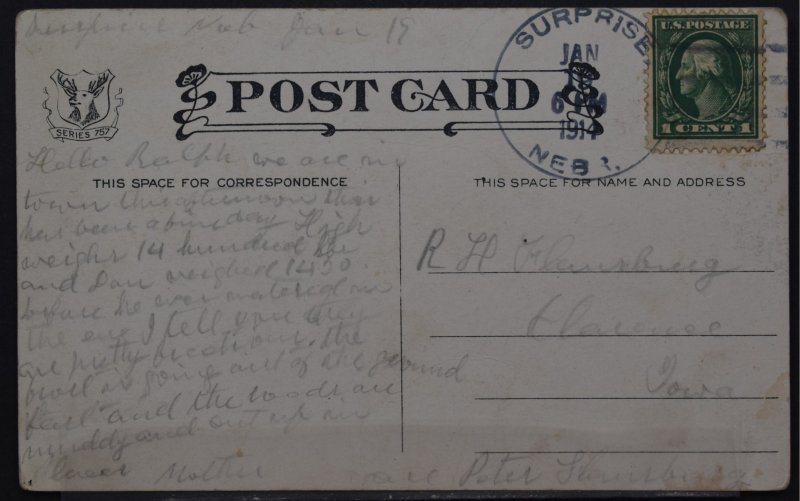 Surprise Neb Jan 19
SURPRISE
JAN
6 PM
1914
NEBR.
U.S. POSTAGE
1 CENT 1
POST CARD
SERIES 757
THIS SPACE FOR CORRESPONDENCE
THIS SPACE FOR NAME AND ADDRESS
Hello Ralph we are in
town this afternoon this
has been a fine day High
weighs 14 hundred
and Dan weighed 1450
before he ever watered in
the eve I tell you they
are pretty the
frost is going out of the ground
fast and the roads are
muddy and cut up
Mother
R H Flansburg
Clarence
Iowa
Peter Flansburg